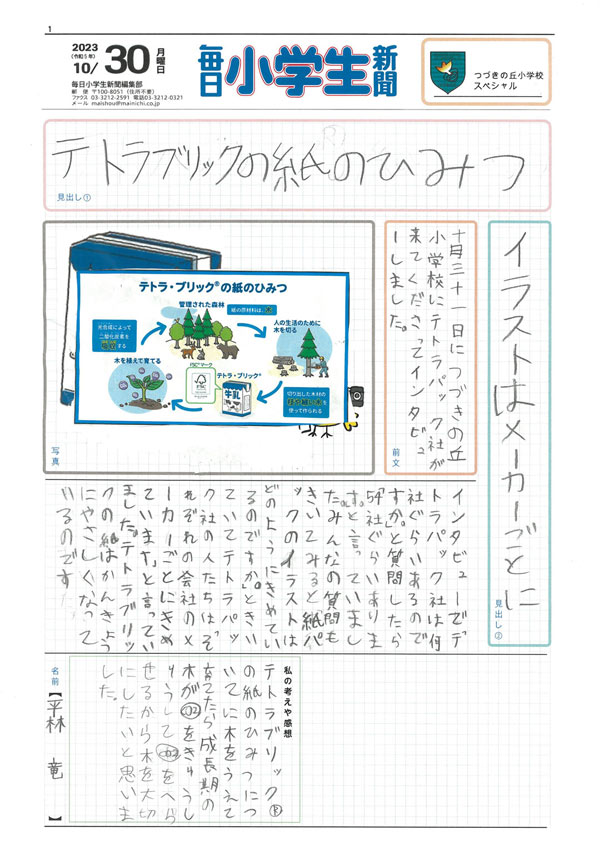 1
2023
(令和5年)
10/30 月曜日
毎日小学生新聞編集部
郵 便 〒100-8051 (住所不要)
ファクス 03-3212-2591 電話03-3212-0321
メール maishou@mainichi.co.jp
毎日小学生新聞
つづきの丘小学校
スペシャル
テトラブリックの紙のひみつ
見出し①
イラストはメーカーごとに
見出し②
十月三十一日につづきの丘
小学校にテトラパック社が
来てくださってインタビュ
ーしました。
前文
テトラ・ブリック®の紙のひみつ
管理された森林
紙の原材料は、木
人の生活のために
木を切る
光合成によって
二酸化炭素を
吸収する
木を植えて育てる
FSC®マーク
FSC
テトラ・ブリック®
牛乳
切り出した木材の
を
使って作られる
写真
インタビューでテ
トラパック社は何
社ぐらいあるので
すか。と質問したら
54社ぐらいありま
す。と言っていまし
た。みんなの質問も
きいてみると紙パ
ックのイラストは
どのようにきめてい
るのですか。ときい
ていてテトラパッ
ク社の人たちはぞ
れぞれの会社のメ
ーカーごとにきめ
ています。と言ってい
ました。テトラブリッ
クの紙はかんきょう
にやさしくなって
いるのです
私の考えや感想
テトラブリック®
の紙のひみつにつ
いてに木をうえて
育てたら成長期の
木がCO2をきゅうし
ゅうしてCO2をへら
せるから木を大切
にしたいと思いま
した。
名前【平林 竜】